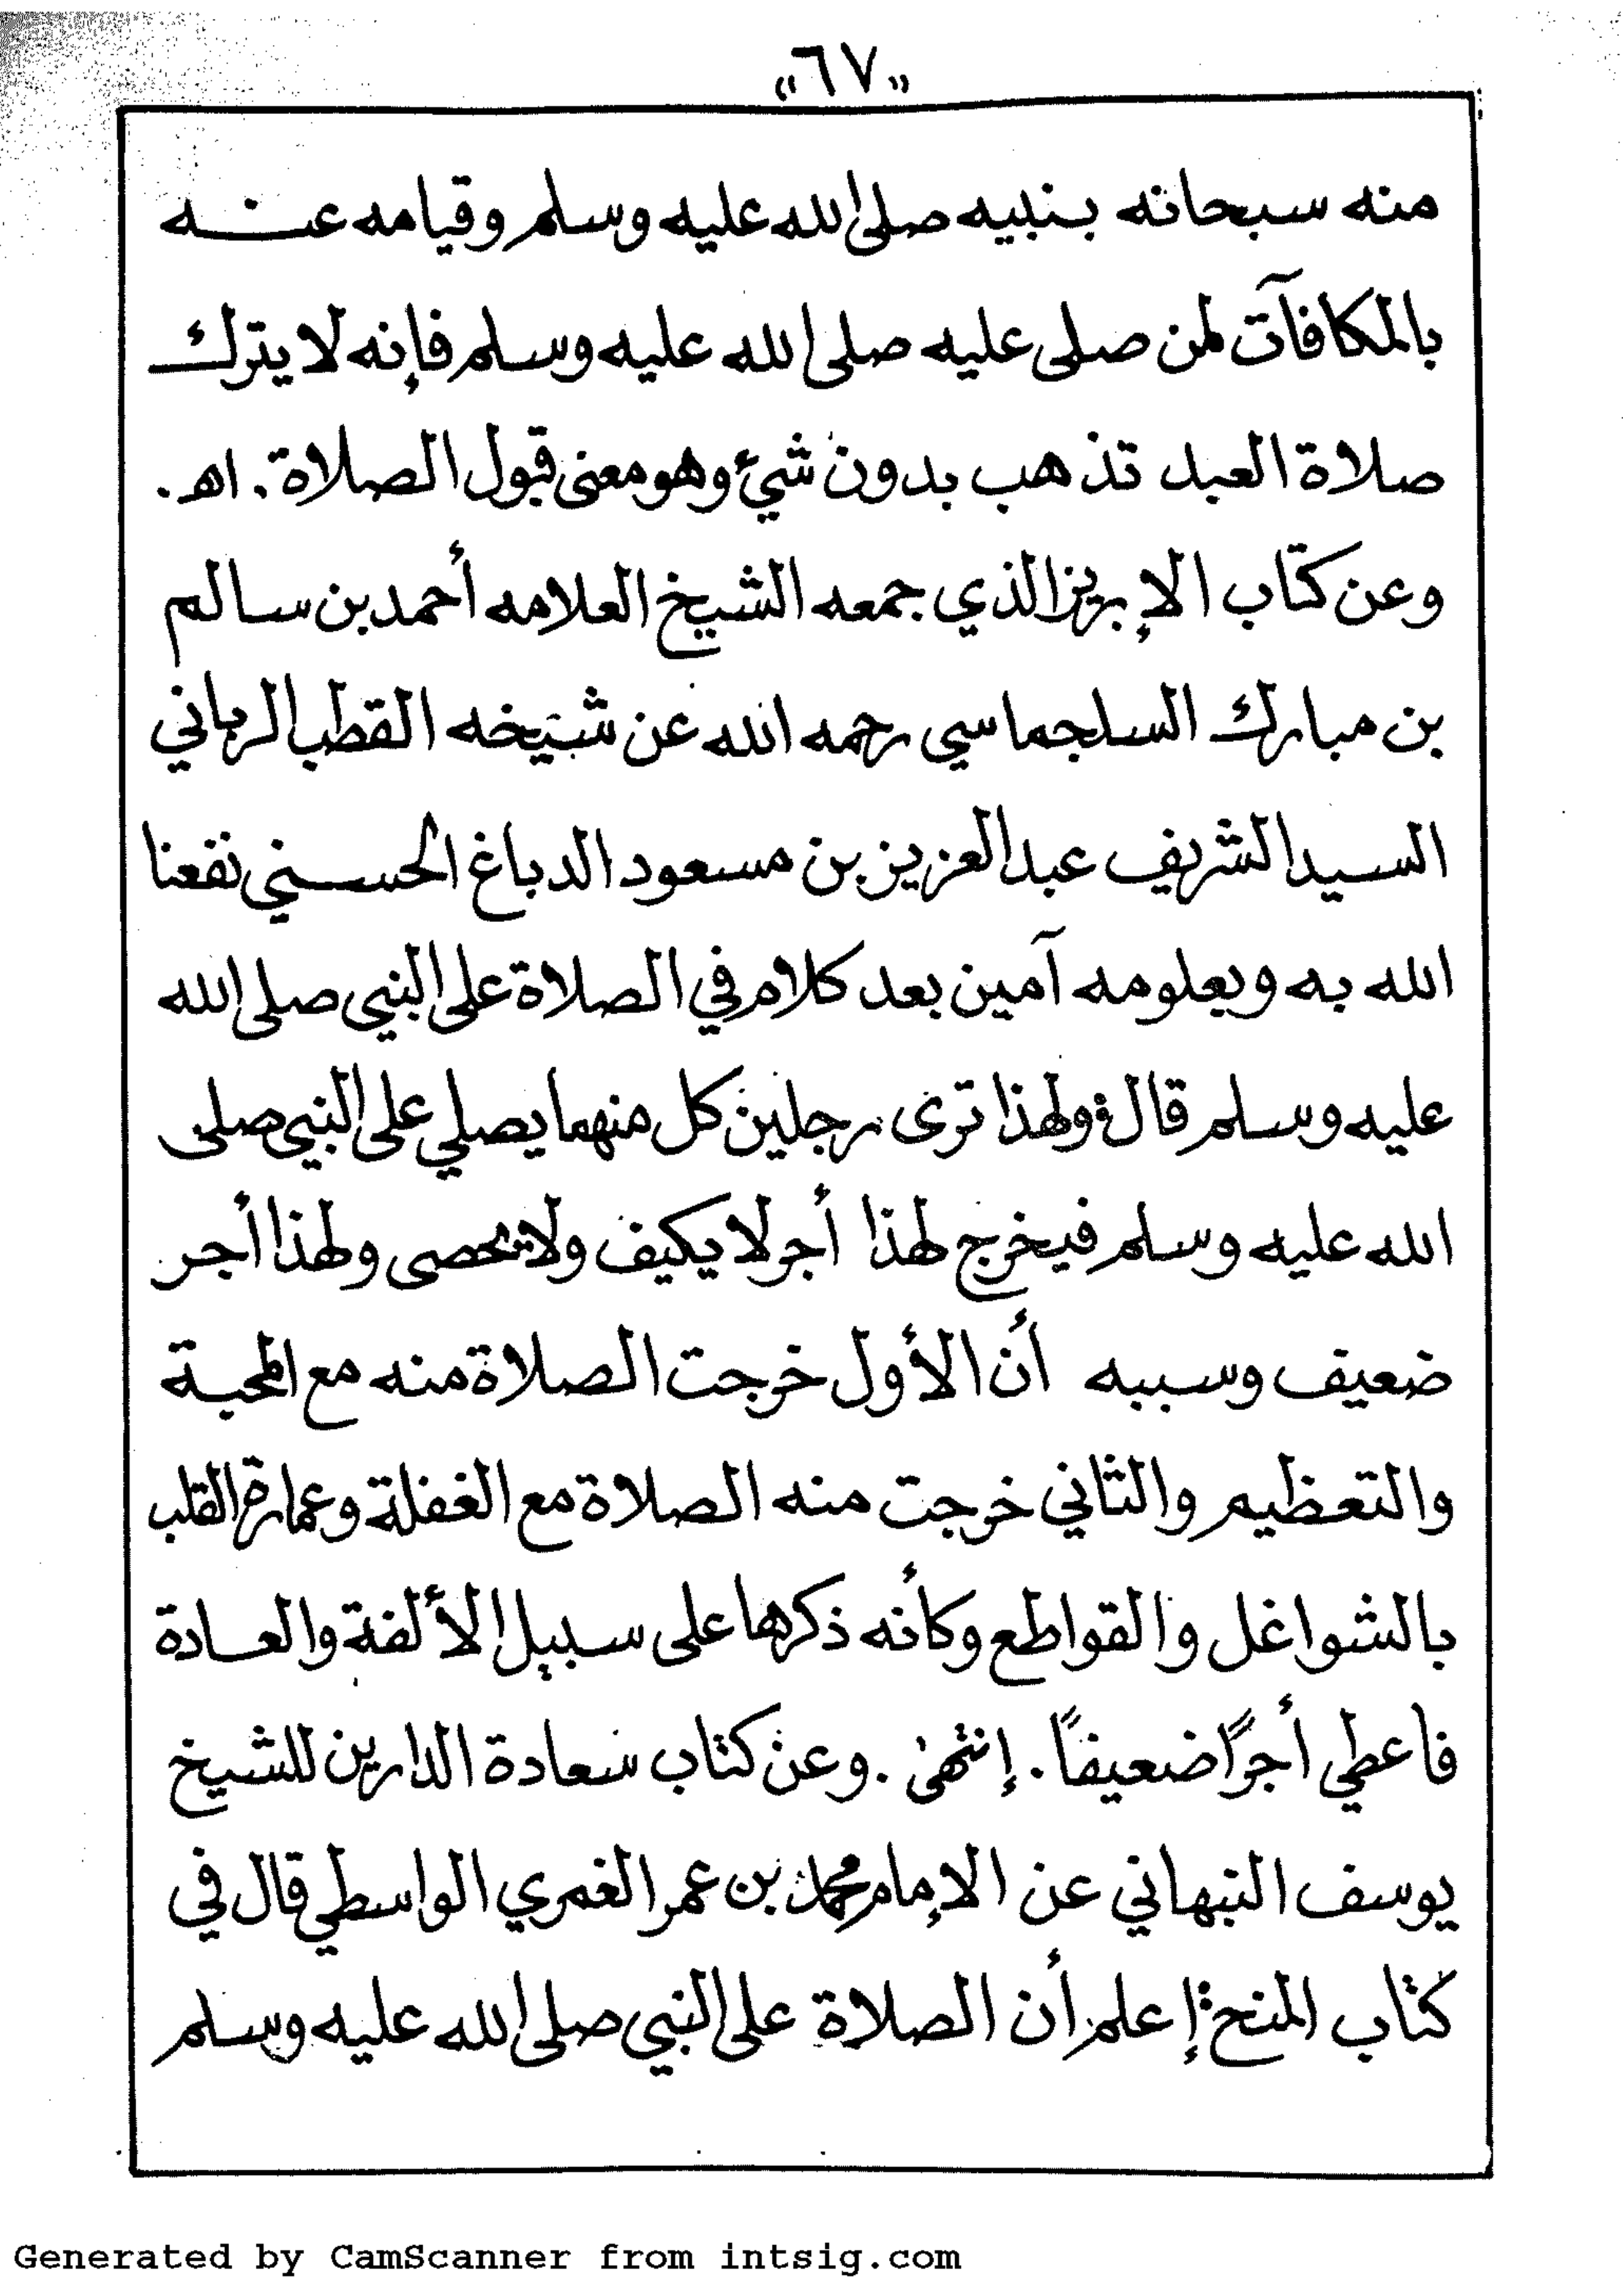 «٦٧»
منه سبحانه بنبيه صلى الله عليه وسلم وقيامه عنه
بالمكافآت لمن صلى عليه صلى الله عليه وسلم فإنه لا يترك
صلاة العبد تذهب بدون شيء وهو معنى قبول الصلاة. اهـ.
وعن كتاب الإبريز الذي جمعه الشيخ العلامه أحمد بن سالم
بن مبارك السلجماسي رحمه الله عن شيخه القطب الرباني
السيد الشريف عبد العزيز بن مسعود الدباغ الحسني نفعنا
الله به وبعلومه آمين بعد كلام في الصلاة على النبي صلى الله
عليه وسلم قال: ولهذا ترى رجلين كل منهما يصلي على النبي صلى
الله عليه وسلم فيخرج لهذا أجر لا يكيف ولا يحصى ولهذا أجر
ضعيف وسببه أن الأول خرجت الصلاة منه مع المحبة
والتعظيم والثاني خرجت منه الصلاة مع الغفلة وعمارة القلب
بالشواغل والقواطع وكأنه ذكرها على سبيل الألفة والعادة
فاعطي أجرًا ضعيفًا. إنتهى. وعن كتاب سعادة الدارين للشيخ
يوسف النبهاني عن الإمام محمد بن عمر الغمري الواسطي قال في
كتاب المنح: إعلم أن الصلاة على النبي صلى الله عليه وسلم
Generated by CamScanner from intsig.com